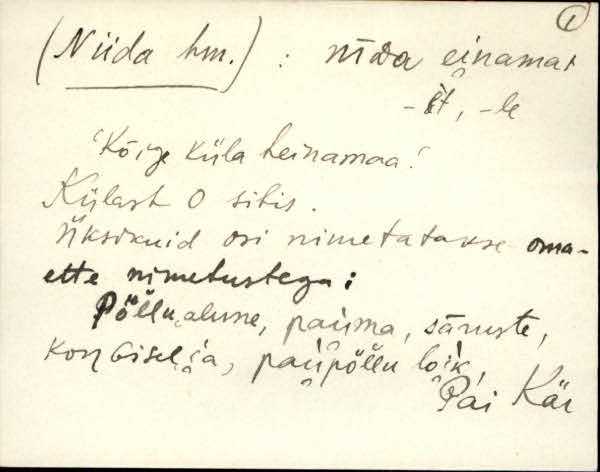 1
(Niida hm.) : nīda einamat
-lt, -le
'Kõige küla heinamaa.'
Külast O sihis.
Üksikuid osi nimetatakse oma-
ette nimetustega:
Põllualune, paiima, säruste,
paiipõllu loik,
Päi Kär